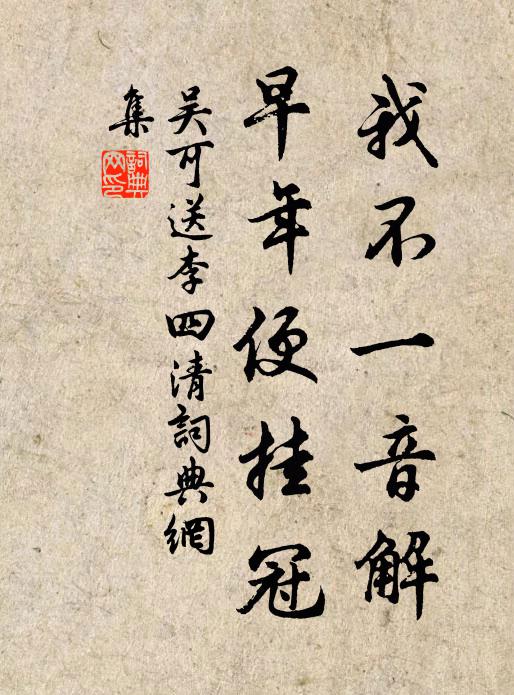 我不一音解
早年便挂冠
吴可送李四清詞典網
集
詞典網印